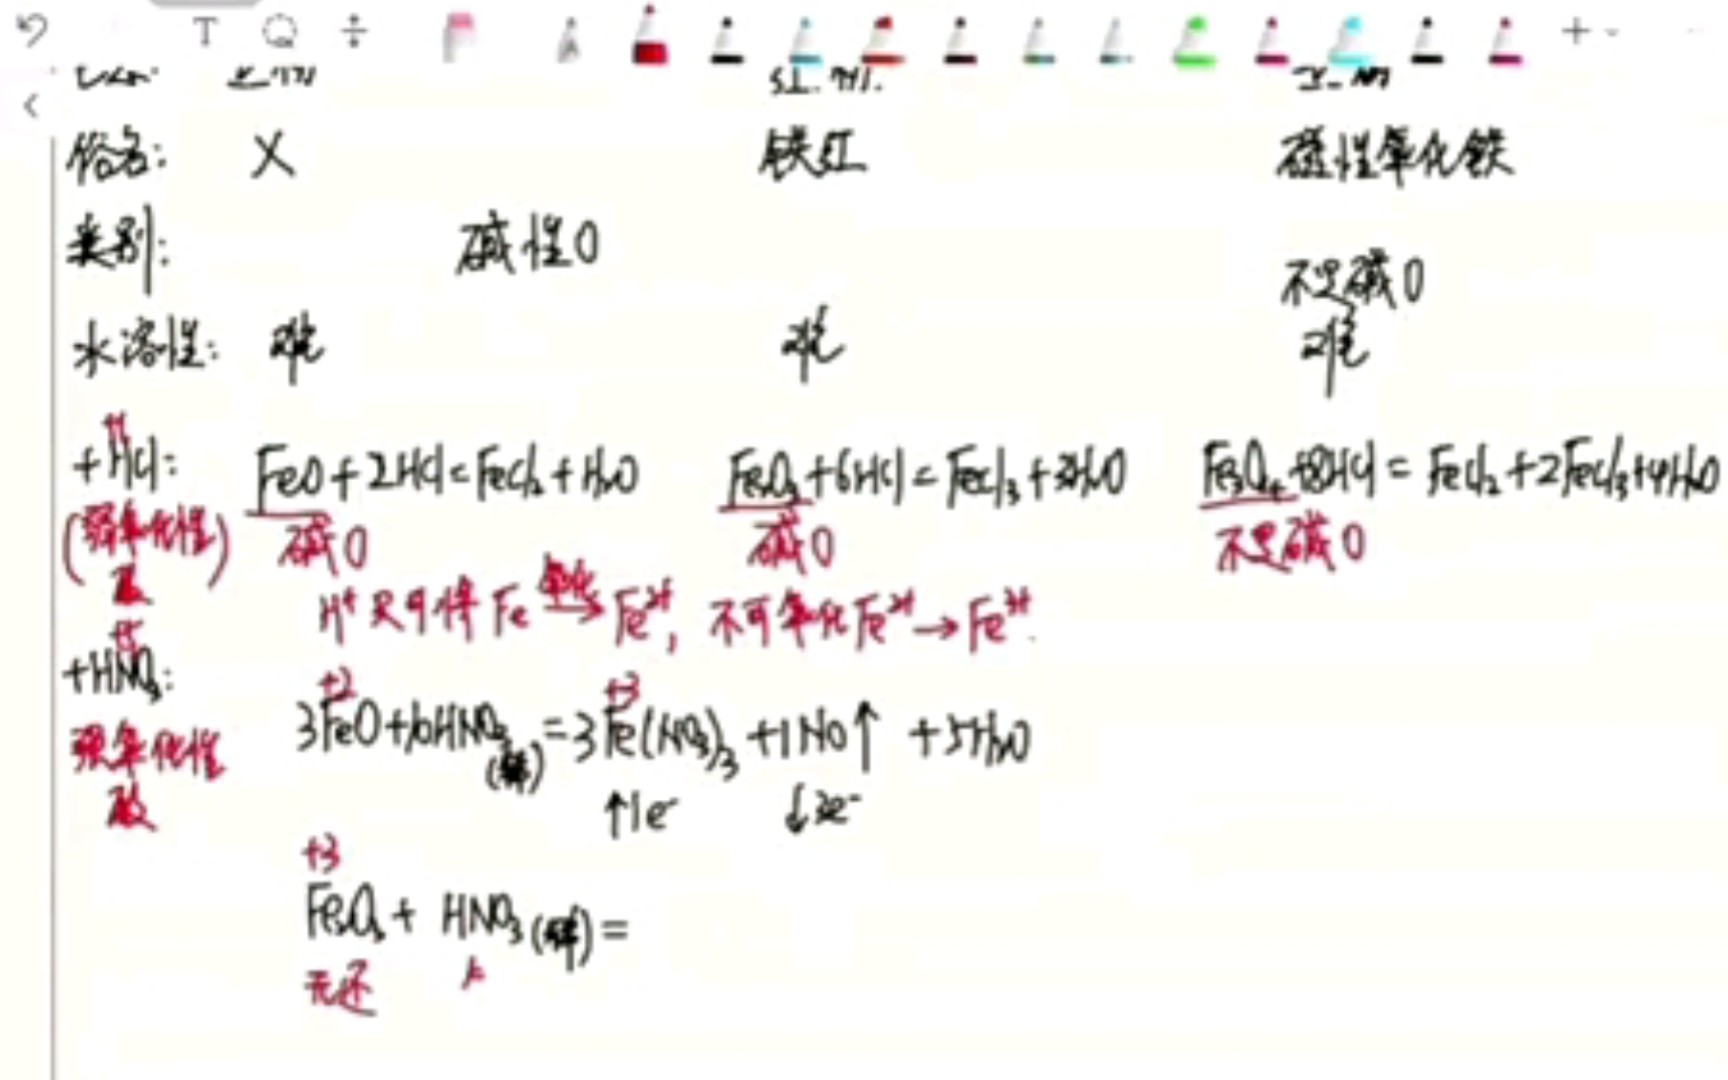 俗名: X 铁红 磁性氧化铁
类别: 碱性O 不是碱O
水溶性: 难 难 难
+1
+HCl: FeO+2HCl=FeCl₂+H₂O Fe₂O₃+6HCl=FeCl₃+3H₂O Fe₃O₄+8HCl=FeCl₂+2FeCl₃+4H₂O
(弱氧化性) 碱O 碱O 不是碱O
酸 H⁺只可将Fe 氧化→ Fe²⁺, 不可氧化Fe²⁺→Fe³⁺.
+5
+HNO₃: +2 +3
3FeO+10HNO₃(稀)=3Fe(NO₃)₃+1NO↑+5H₂O
强氧化性
酸 ↑1e⁻ ↓3e⁻
+3
Fe₂O₃+ HNO₃(稀)=
无还